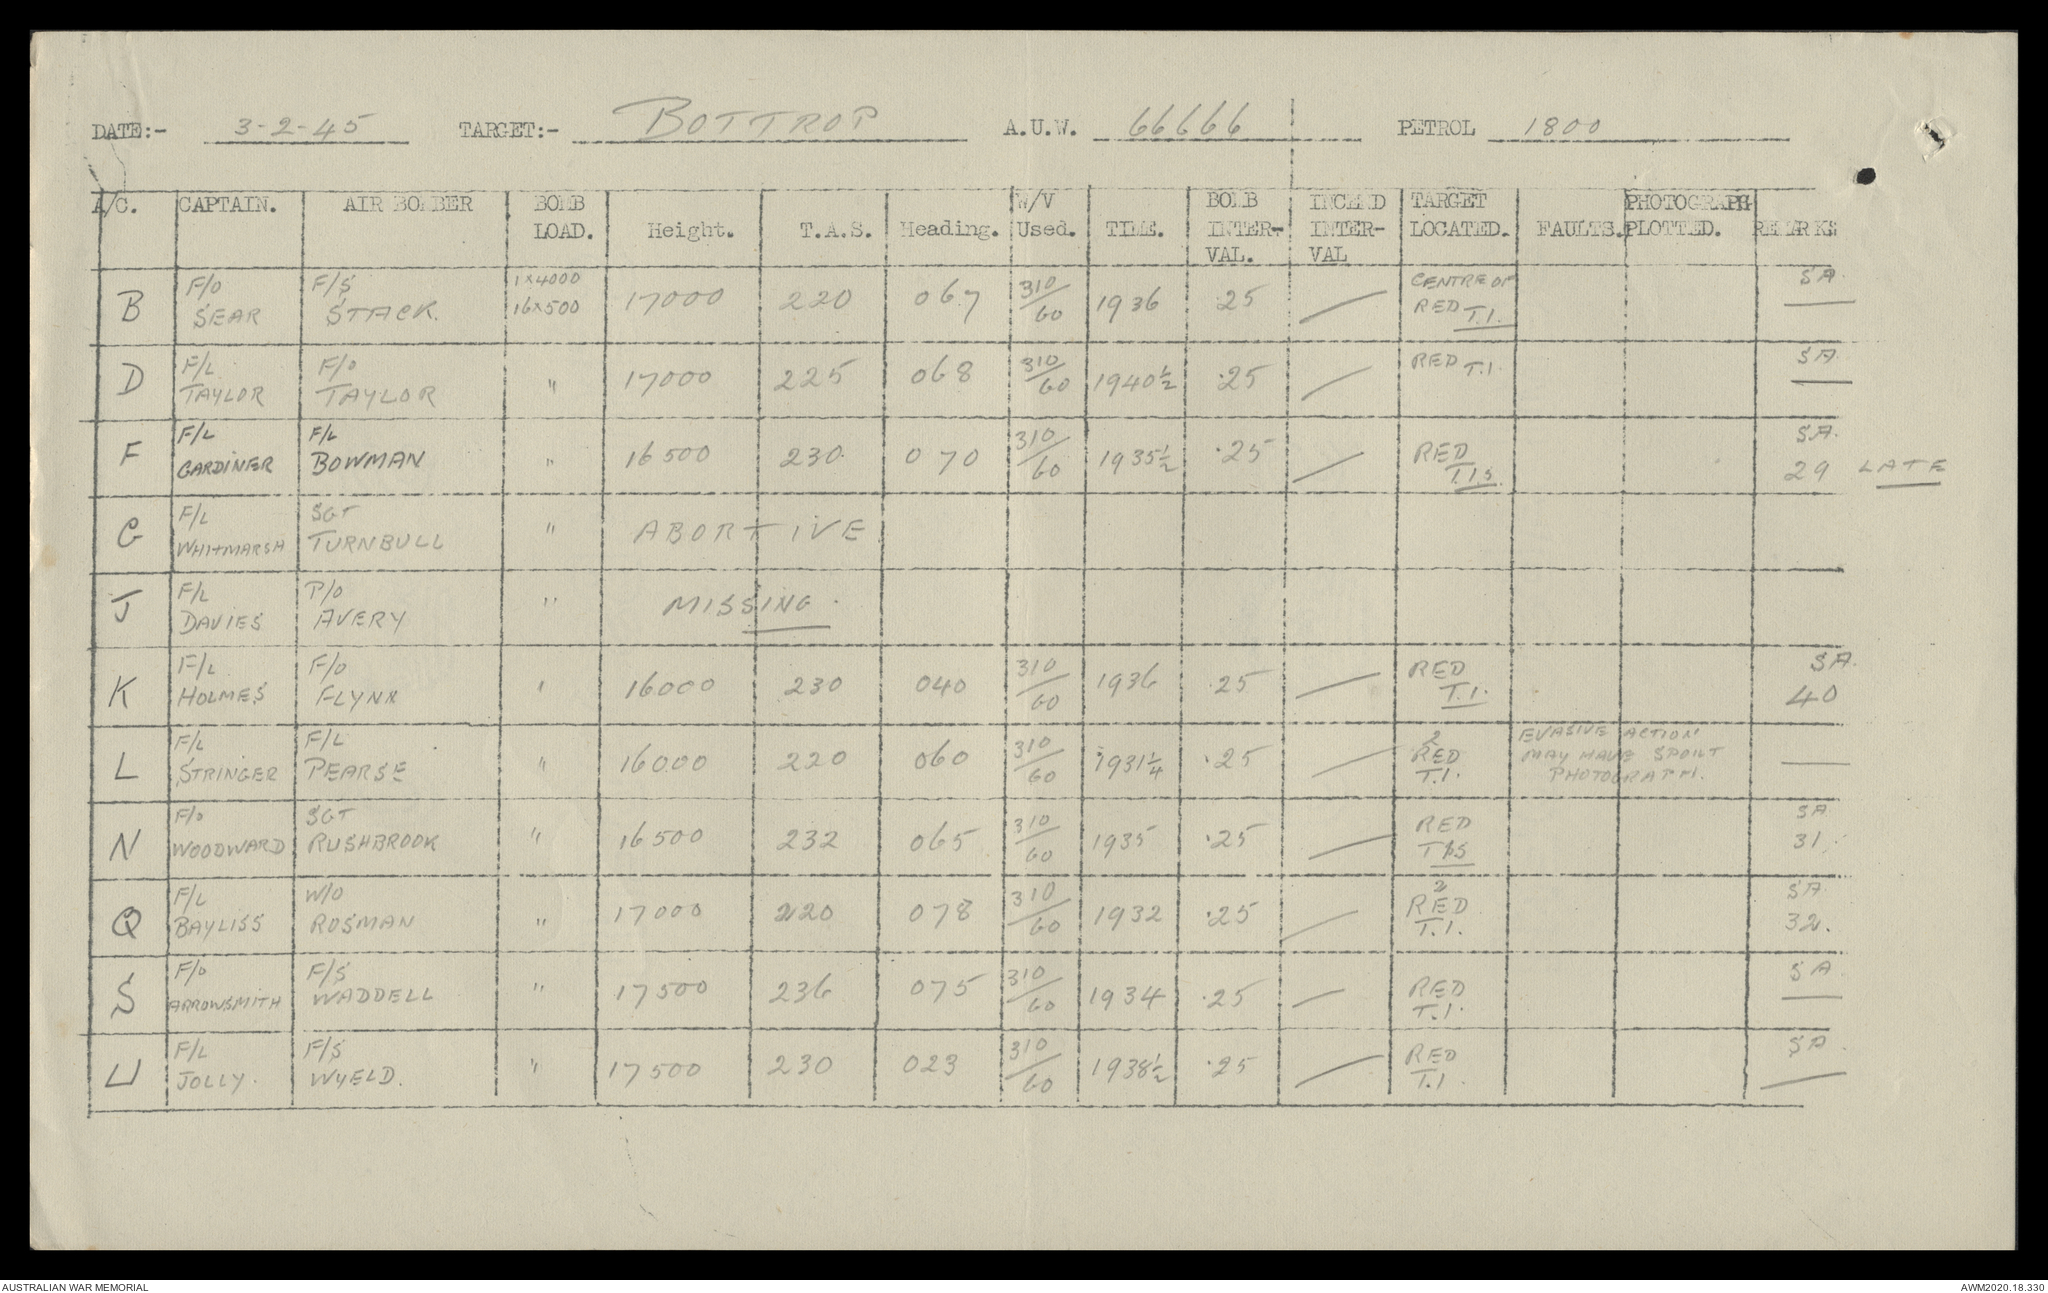 DATE:- 3-2-45 TARGET:- BOTTROP A.U.W. 66666 PETROL 1800
A/C. CAPTAIN. AIR BOMBER BOMB LOAD. Height. T.A.S. Heading. W/V Used. TIME. BOMB INTER-VAL. INCEND INTER-VAL TARGET LOCATED. FAULTS. PHOTOGRAPH PLOTTED. REMARKS
B F/O SEAR F/S STACK. 1x4000 16x500 17000 220 067 310/60 1936 .25 / CENTRE OF RED T.I. SA. —
D F/L TAYLOR F/O TAYLOR " 17000 225 068 310/60 1940½ .25 / RED T.I. SA —
F F/L GARDINER F/L BOWMAN " 16500 230 070 310/60 1935½ .25 / RED T.I.s. SA. 29 LATE
G F/L WHITMARSH SGT TURNBULL " ABORTIVE
J F/L DAVIES P/O AVERY " MISSING.
K F/L HOLMES F/O FLYNN " 16000 230 040 310/60 1936 .25 / RED T.I. SA. 40
L F/L STRINGER F/L PEARSE " 16000 220 060 310/60 1931¼ .25 / 2 RED T.I. EVASIVE ACTION MAY HAVE SPOILT PHOTOGRAPH. —
N F/O WOODWARD SGT RUSHBROOK " 16500 232 065 310/60 1935 .25 / RED TIS SA 31.
Q F/L BAYLISS W/O ROSMAN " 17000 220 078 310/60 1932 .25 / 2 RED T.I. SA 32.
S F/O ARROWSMITH F/S WADDELL " 17500 236 075 310/60 1934 .25 / RED T.I. SA —
U F/L JOLLY. F/S WYELD. " 17500 230 023 310/60 1938½ .25 / RED T.I. SA. —
AUSTRALIAN WAR MEMORIAL AWM2020.18.330